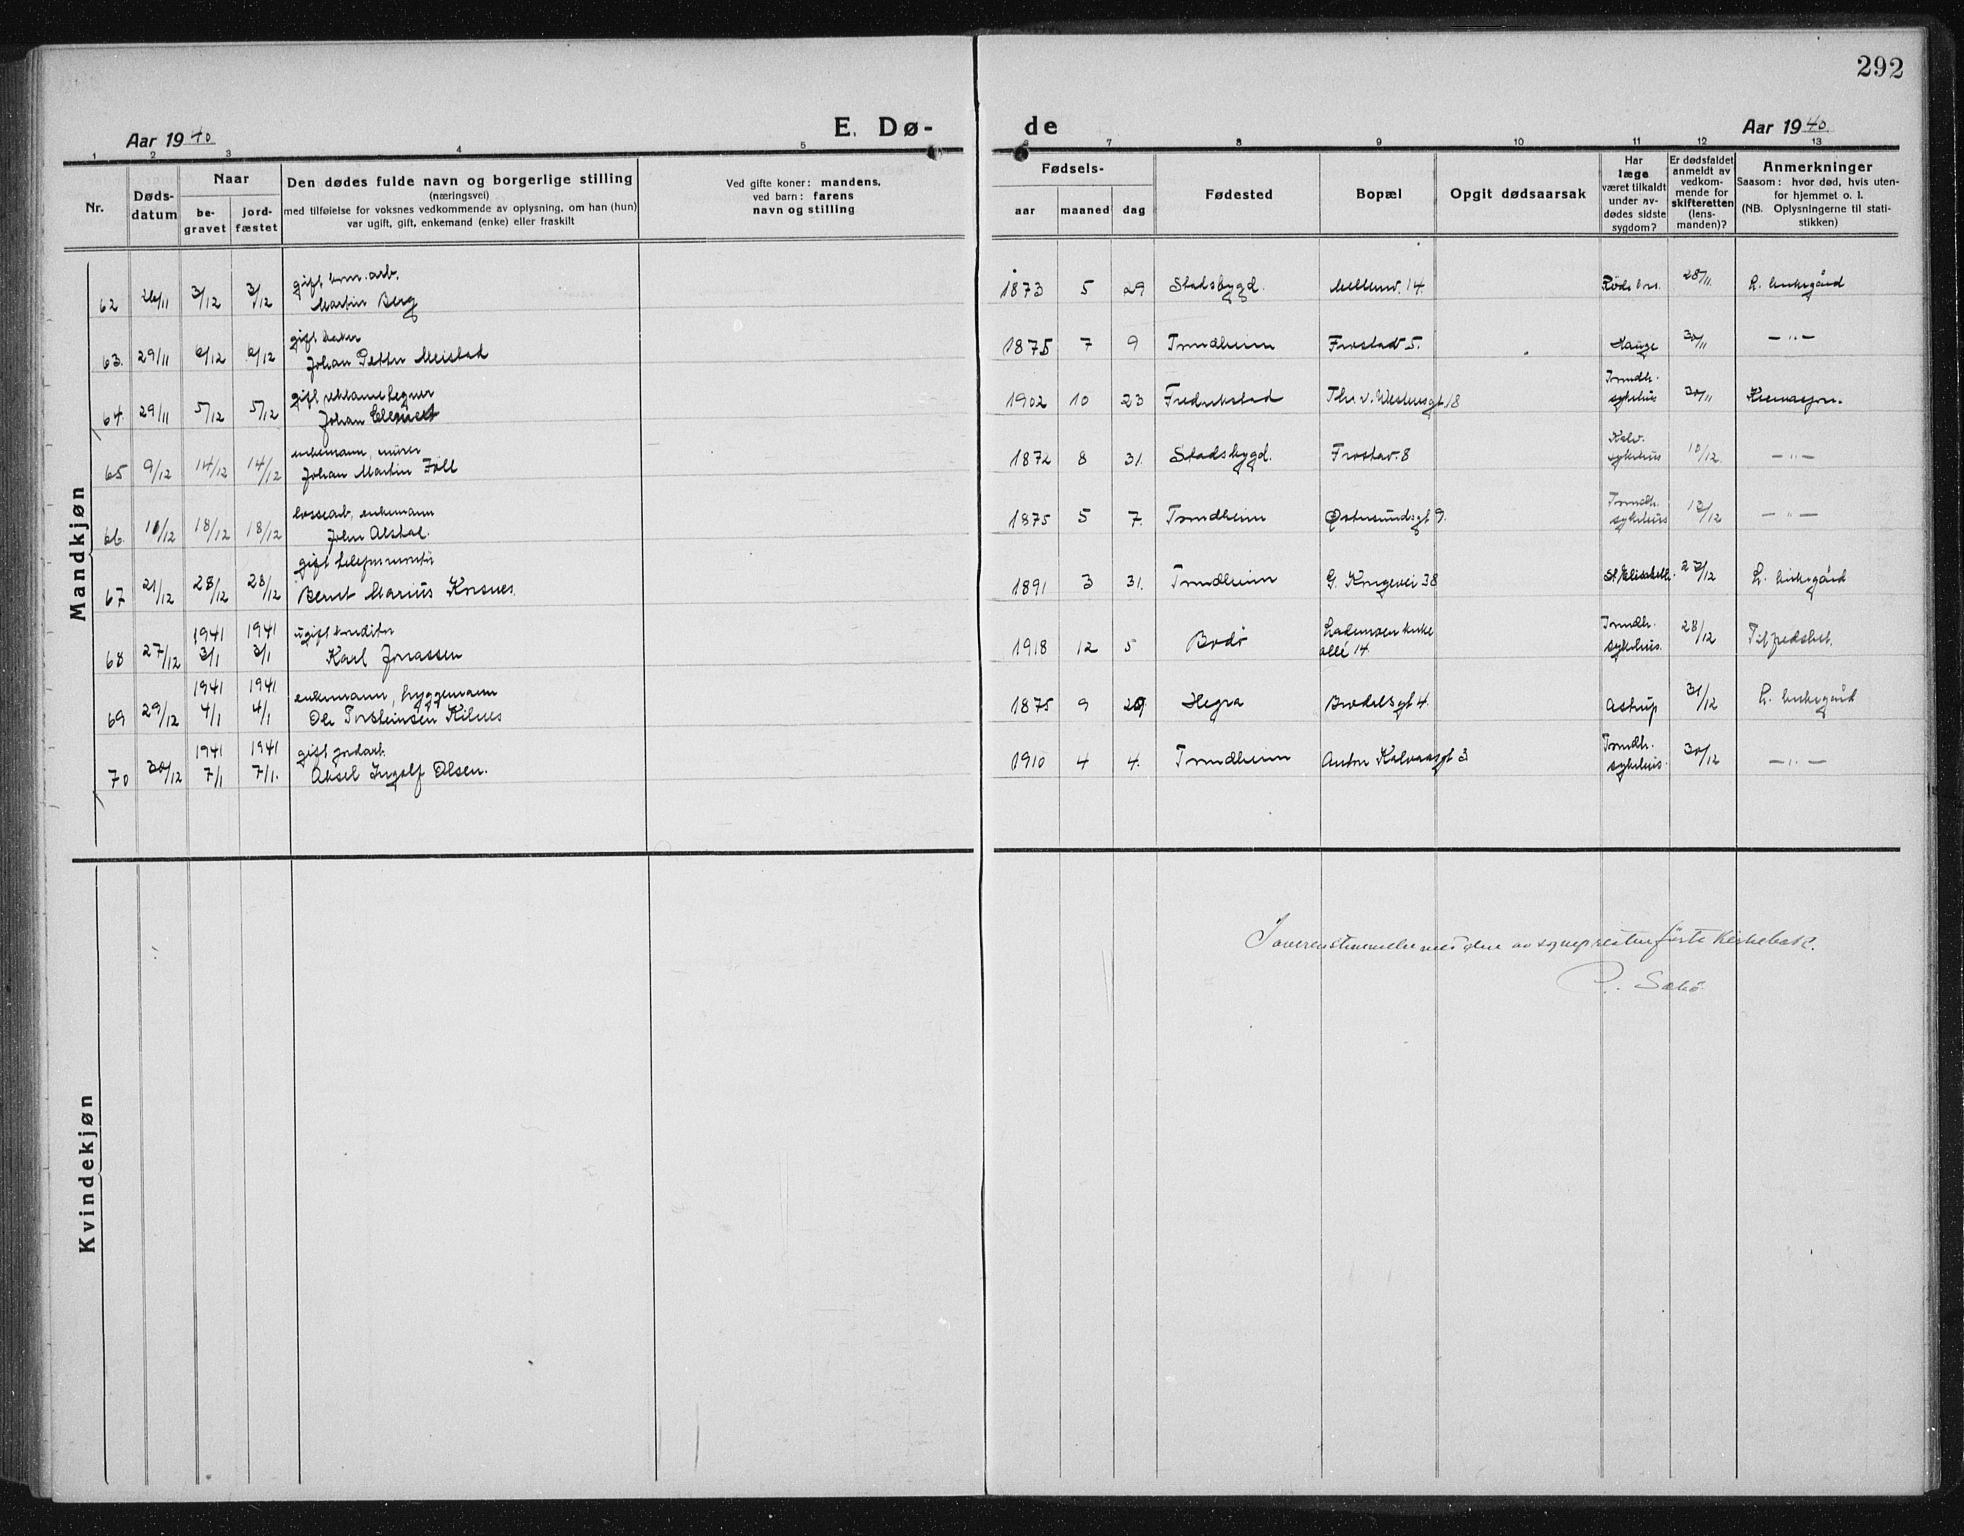 292
Aar 1940
E. Dø-
de
Aar 1940.
1 2 3 4 5
6 7 8 9 10 11 12 13
Nr.
Døds-
datum
Naar
be-
gravet
jord-
fæstet
Den dødes fulde navn og borgerlige stilling
(næringsvei)
med tilføielse for voksnes vedkommende av oplysning, om han (hun)
var ugift, gift, enkemand (enke) eller fraskilt
Ved gifte koner: mandens,
ved barn: farens
navn og stilling
Fødsels-
aar maaned dag
Fødested
Bopæl
Opgit dødsaarsak
Har
læge
været tilkaldt
under av-
dødes sidste
sygdom?
Er dødsfaldet
anmeldt av
vedkom-
mende for
skifteretten
(lens-
manden)?
Anmerkninger
Saasom: hvor død, hvis uten-
for hjemmet o. l.
(NB. Oplysningerne til stati-
stikken)
Mandkjøn
gift, kom. arb.
62 26/11 3/12 3/12 Martin Berg 1873 5 29 Stadsbygd. Mellemv. 14. 28/11 L. kirkegård
gift baker
63. 29/11 6/12 6/12 Johan Petter Meistad 1875 7 9 Trondheim Frostav 5. Hauge 30/11 —"—
gift, reklametegner
64. 29/11 5/12 5/12 Johan 1902 10 23 Fredrikstad Ths. v. Westensgt 18 Trondh. sykehus 30/11
enkemann, murer
65 9/12 14/12 14/12 Johan Martin Föll 1872 8 31. Stadsbygd. Frostav. 8 sykehus 10/12. —"—
lossearb, enkemann
66. 10/12 18/12 18/12 John Alstad. 1875 5 7. Trondheim Østersundsgt 9. Trondh. sykehus 13/12 —"—
gift telefonmontør
67 21/12 28/12 28/12 Bernt Marius Korsnes. 1891 3 31. Trondheim G. Kongevei 38 St. Elisabeth. 27/12 L. kirkegård
1941 1941 ugift konditor
68 27/12 3/1 3/1 Karl Jonassen 1918 12 5 Bodö Lademoen kirke allé 14. Trondh. sykehus. 28/12 Tilfredshet.
1941 1941 enkemann, byggemann
69 29/12 4/1 4/1 Ole Torsteinsen Kilnes 1875 9 29 Hegra Brodelsgt 4. Astrup 31/12 L. kirkegård
1941 1941 gift jordarb.
70 30/12 7/1 7/1. Aksel Ingolf Olsen. 1910 4 4. Trondheim Anton Kalvaasgt 3 Trondh. sykehus. 30/12 —"—
Kvindekjøn
I overensstemmelse med den av sognepresten førte kirkebok.
P. Sæbö.